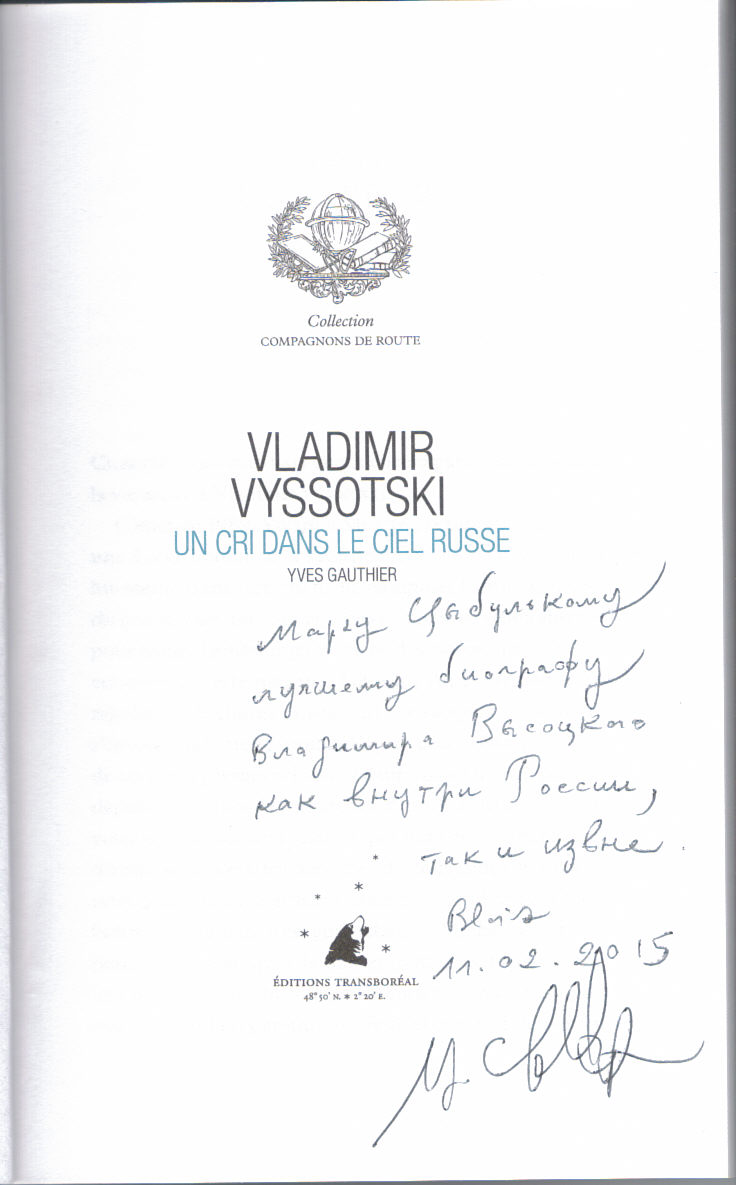 Collection
COMPAGNONS DE ROUTE
VLADIMIR
VYSSOTSKI
UN CRI DANS LE CIEL RUSSE
YVES GAUTHIER
Марку Цыбулькому
лучшему биографу
Владимира Высоцкого
как внутри России,
так и извне.
Blois
11.02.2015
ÉDITIONS TRANSBORÉAL
48° 50' N. * 2° 20' E.